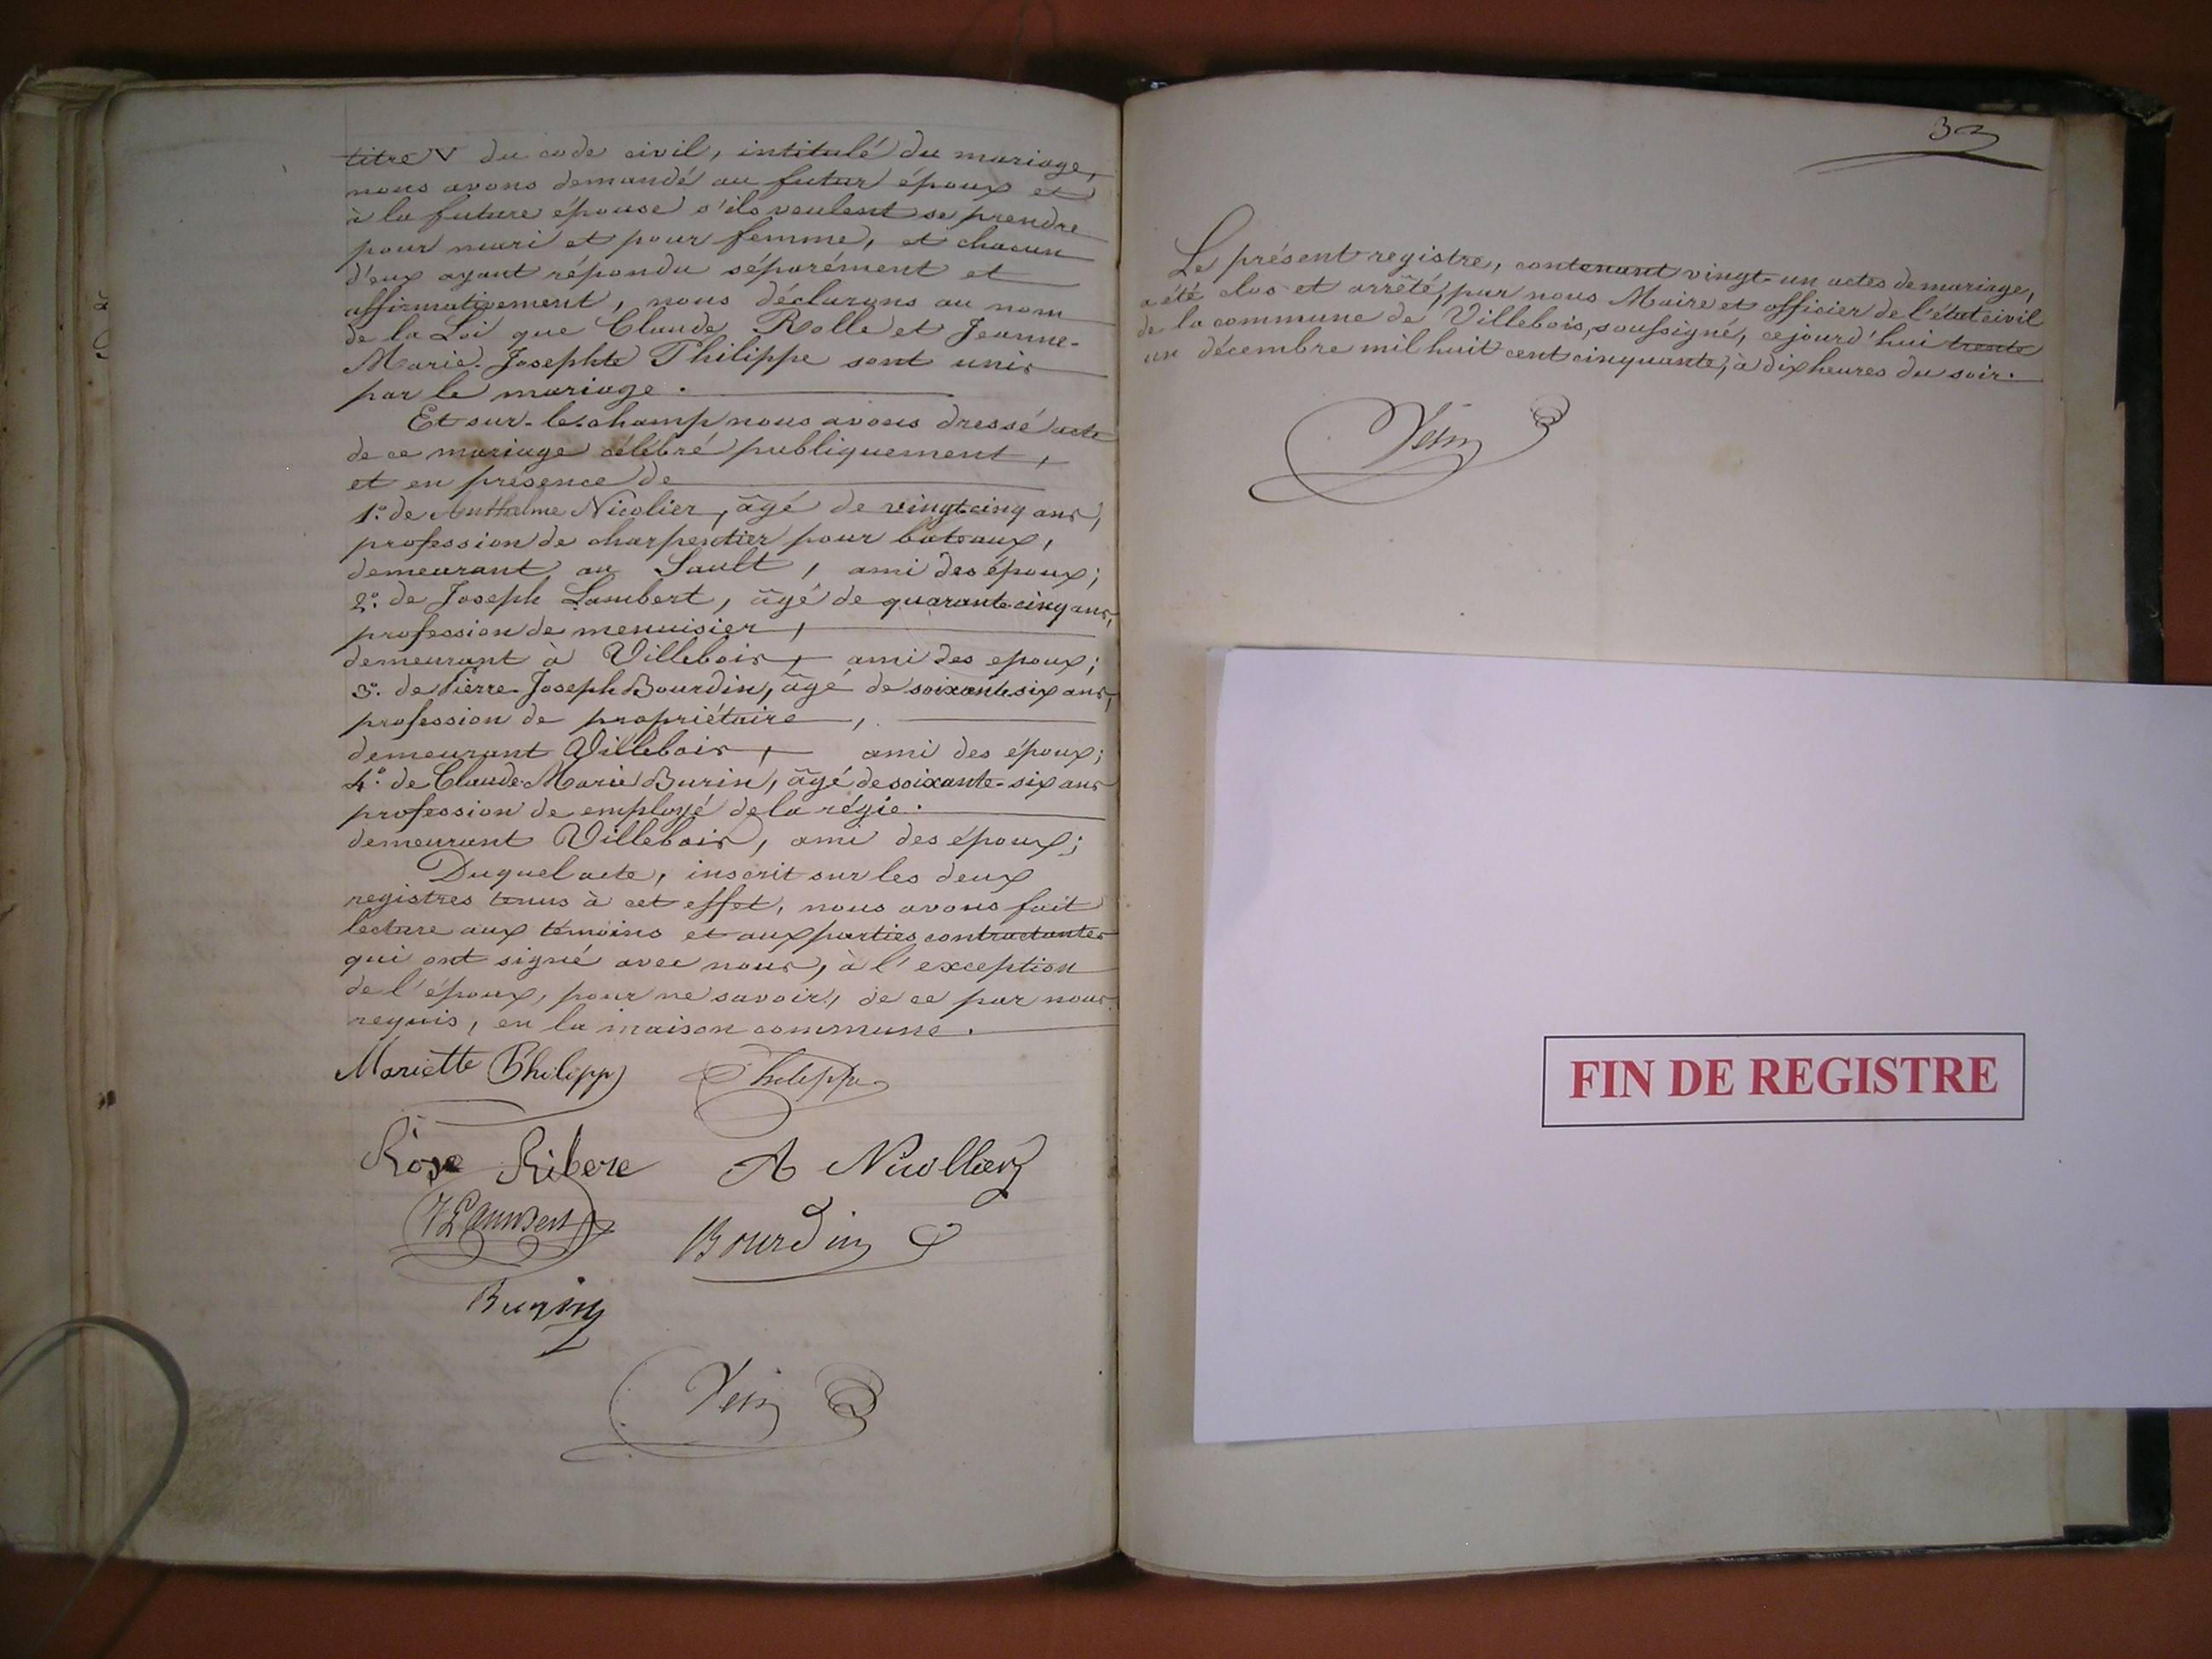 titre V du code civil, intitulé du mariage,
nous avons demandé au futur époux et
à la future épouse s'ils veulent se prendre
pour mari et pour femme, et chacun
d'eux ayant répondu séparément et
affirmativement, nous déclarons au nom
de la Loi que Claude Rolle et Jeanne-
Marie-Josephte Philippe sont unis
par le mariage.
Et sur-le-champ nous avons dressé acte
de ce mariage célébré publiquement,
et en présence de
1º. de Anthelme Nicolier, âgé de vingt cinq ans,
profession de charpentier pour bateaux,
demeurant au Sault, ami des époux;
2º. de Joseph Lambert, âgé de quarante-cinq ans,
profession de menuisier,
demeurant à Villebois, ami des epoux;
3º. de Pierre-Joseph Bourdin, âgé de soixante-six ans,
profession de propriétaire,
demeurant Villebois, ami des époux;
4º. de Claude-Marie Burin, âgé de soixante-six ans
profession de employé de la régie.
demeurant Villebois, ami des époux;
Duquel acte, inscrit sur les deux
registres tenus à cet effet, nous avons fait
lecture aux témoins et aux parties contractantes
qui ont signé avec nous, à l'exception
de l'époux, pour ne savoir, de ce par nous
requis, en la maison commune.
Mariette Philipp Philippe
Rose Ribere A Nicollier
J Lambert Bourdin
Burin
32
Le présent registre, contenant vingt-un actes de mariage,
a été clos et arrêté, par nous Maire et officier de l'état civil
de la commune de Villebois, soussigné, cejourd'hui trente
un décembre mil huit cent cinquante, à dix heures du soir.
FIN DE REGISTRE